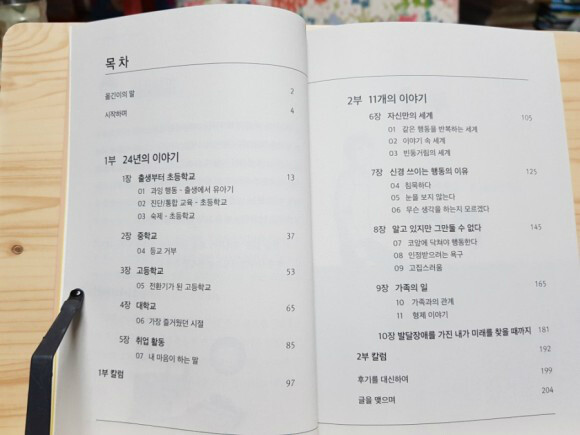 목차
옮긴이의 말 2
시작하며 4
1부 24년의 이야기
1장 출생부터 초등학교 13
01 과잉 행동 - 출생에서 유아기
02 진단/통합 교육 - 초등학교
03 숙제 - 초등학교
2장 중학교 37
04 등교 거부
3장 고등학교 53
05 전환기가 된 고등학교
4장 대학교 65
06 가장 즐거웠던 시절
5장 취업 활동 85
07 내 마음이 하는 말
1부 칼럼 97
2부 11개의 이야기
6장 자신만의 세계 105
01 같은 행동을 반복하는 세계
02 이야기 속 세계
03 빈둥거림의 세계
7장 신경 쓰이는 행동의 이유 125
04 침묵하다
05 눈을 보지 않는다
06 무슨 생각을 하는지 모르겠다
8장 알고 있지만 그만둘 수 없다 145
07 코앞에 닥쳐야 행동한다
08 인정받으려는 욕구
09 고집스러움
9장 가족의 일 165
10 가족과의 관계
11 형제 이야기
10장 발달장애를 가진 내가 미래를 찾을 때까지 181
2부 칼럼 192
후기를 대신하여 199
글을 맺으며 204